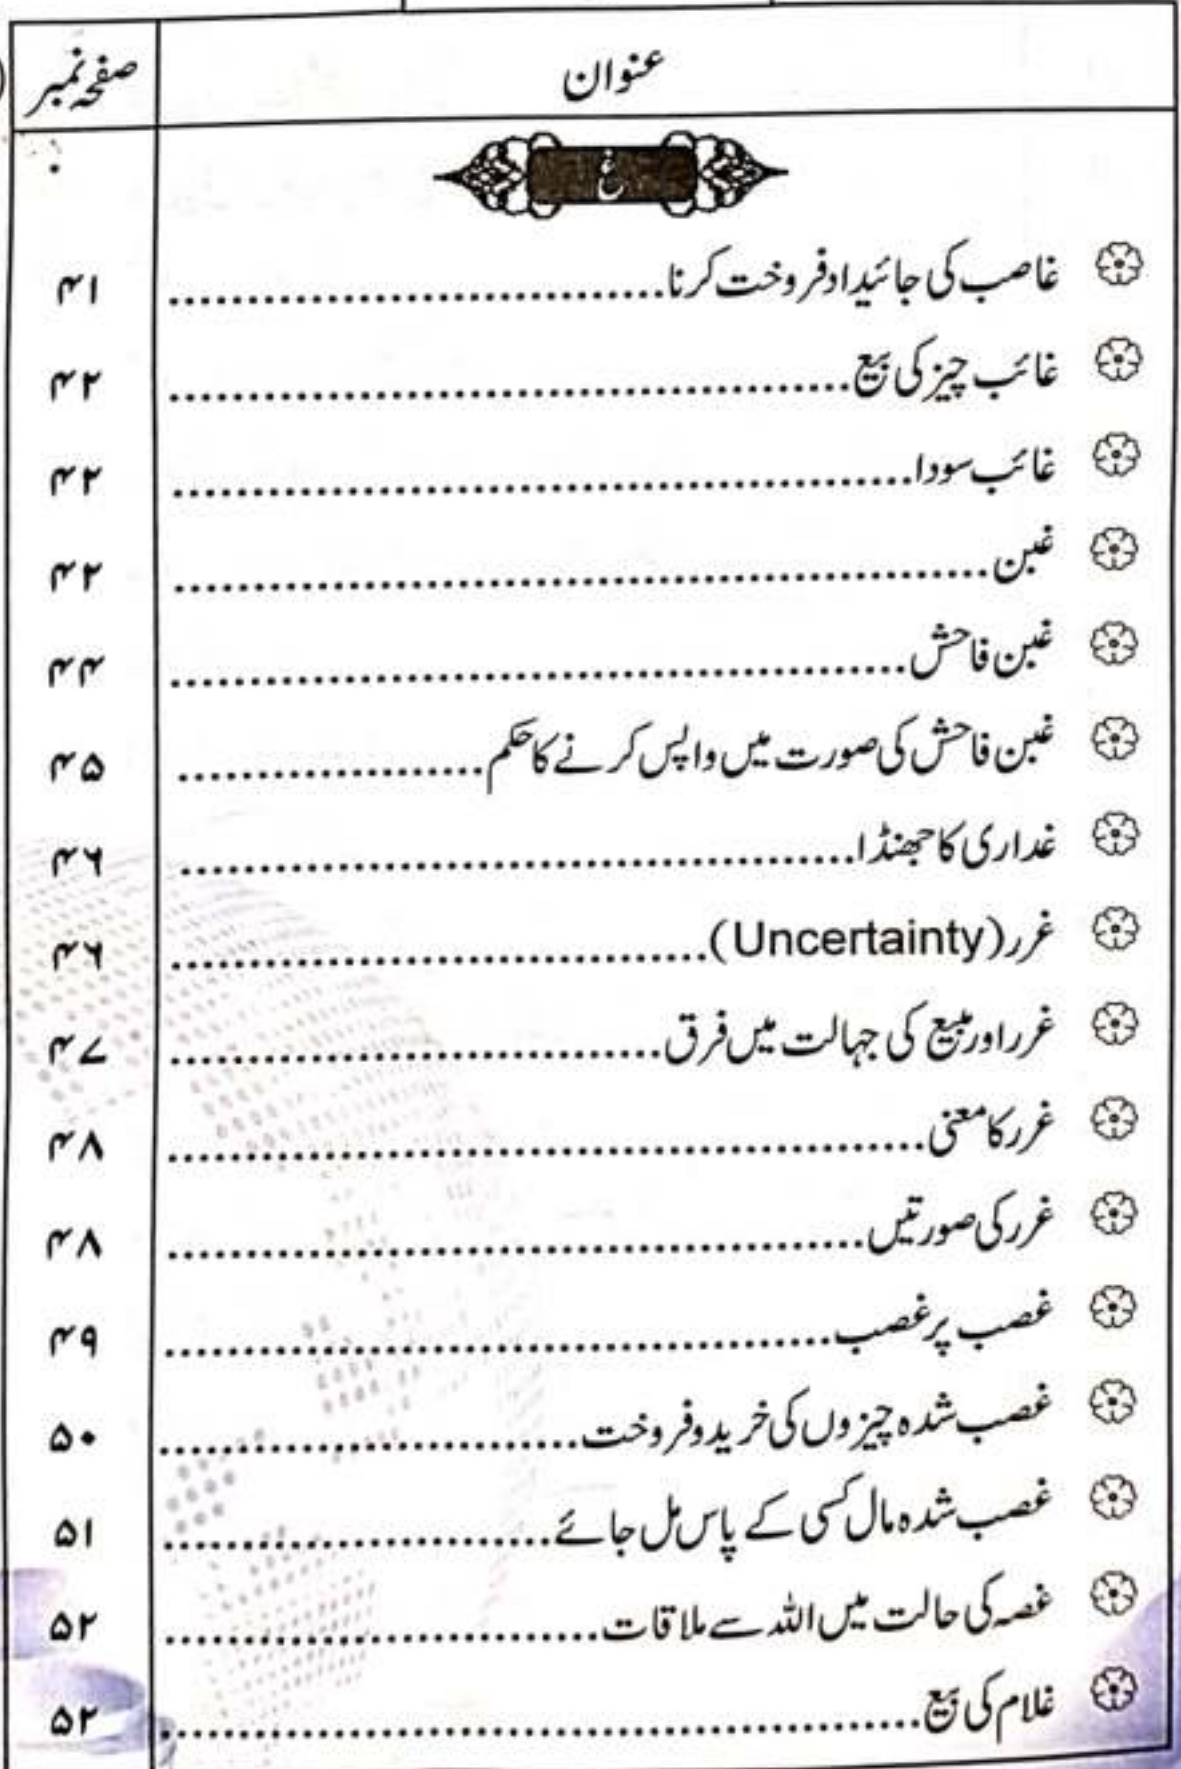 عنوان صفحہ نمبر
غ
غاصب کی جائیداد فروخت کرنا ۴۱
غائب چیز کی بیع ۴۲
غائب سودا ۴۲
غبن ۴۲
غبن فاحش ۴۴
غبن فاحش کی صورت میں واپس کرنے کا حکم ۴۵
غداری کا جھنڈا ۴۶
غرر (Uncertainty) ۴۶
غرر اور مبیع کی جہالت میں فرق ۴۷
غرر کا معنی ۴۸
غرر کی صورتیں ۴۸
غصب پر غصب ۴۹
غصب شدہ چیزوں کی خرید و فروخت ۵۰
غصب شدہ مال کسی کے پاس مل جائے ۵۱
غصہ کی حالت میں اللہ سے ملاقات ۵۲
غلام کی بیع ۵۲